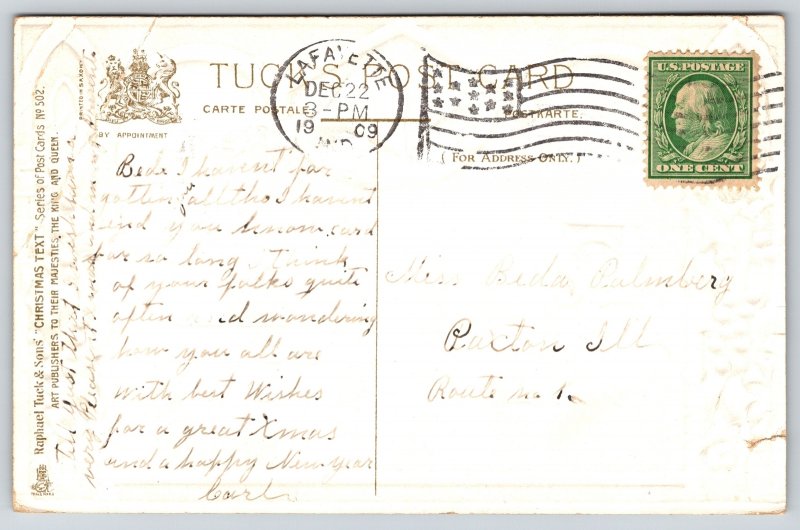 TUCK'S POST CARD
CARTE POSTALE
POSTKARTE.
BY APPOINTMENT
FOR ADDRESS ONLY.
LAFAYETTE
DEC 22
3-PM
1909
IND.
U.S. POSTAGE
ONE CENT
Beda I havent for
gotten you all tho I havent
send you know card
for so long. Think
of your folks quite
often and wondering
how you all are
with best Wishes
for a great Xmas
and a happy New year
Carl
Miss Beda Palmberg
Paxton Ill
Route no 1.
Raphael Tuck & Sons' "CHRISTMAS TEXT" Series of Post Cards No 502.
ART PUBLISHERS TO THEIR MAJESTIES THE KING AND QUEEN.
PRINTED IN SAXONY